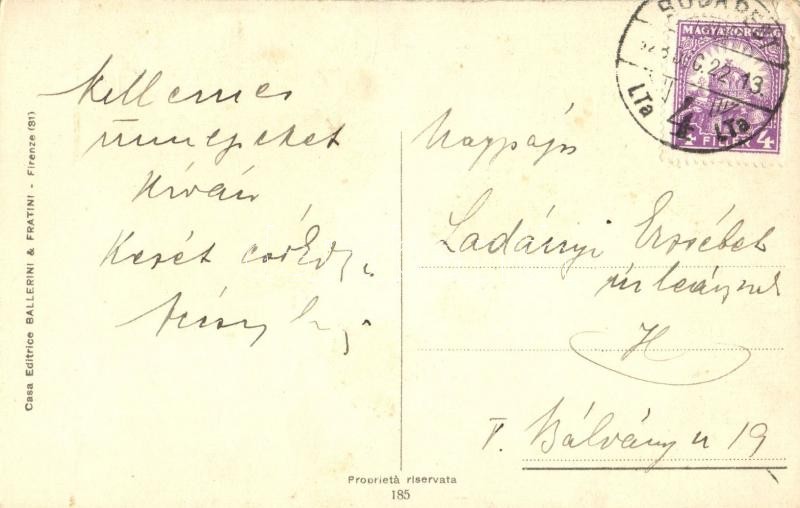 Kellemes
ünnepeket
kíván
Kezét csókolja
BUDAPEST
928 DEC. 22. 13
4
LTa LTa
MAGYARORSZÁG
4 FILLÉR 4
Ladányi Erzsébet
úrleánynak
V. Bálvány u 19
Casa Editrice BALLERINI & FRATINI - Firenze (81)
Proprietà riservata
185